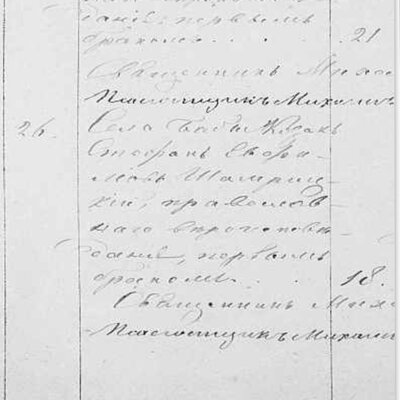 данія, первымъ
бракомъ . . . . 21
Священникъ Миха
Псаломщикъ Михаилъ
26. Села Бабы Козакъ
Стефанъ Евфи-
мовъ
кій, православ-
наго вѣроиспове-
данія, первымъ
бракомъ . . . 18.
Священникъ Миха
Псаломщикъ Михаилъ